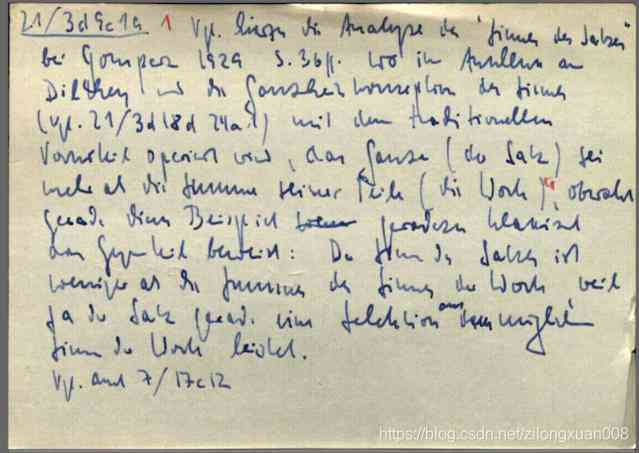 21/3d9c1a 1 Vgl. hierzu die Analyse des "Sinnes des Satzes"
bei Gomperz 1929 S. 36ff. wo im Anschluss an
Dilthey und die Ganzheitskonzeption des Sinnes
(vgl. 21/3d18d 24a1) mit dem traditionellen
Vorurteil operiert wird, das Ganze (der Satz) sei
mehr als die Summe seiner Teile (die Worte), obwohl
gerade dieses Beispiel geradezu klassisch
das Gegenteil beweist: Der Sinn des Satzes ist
weniger als die Summe des Sinnes der Worte, weil
ja der Satz gerade eine Selektion aus dem möglichen
Sinn der Worte leistet.
Vgl. auch 7/17c12
https://blog.csdn.net/zilongxuan008